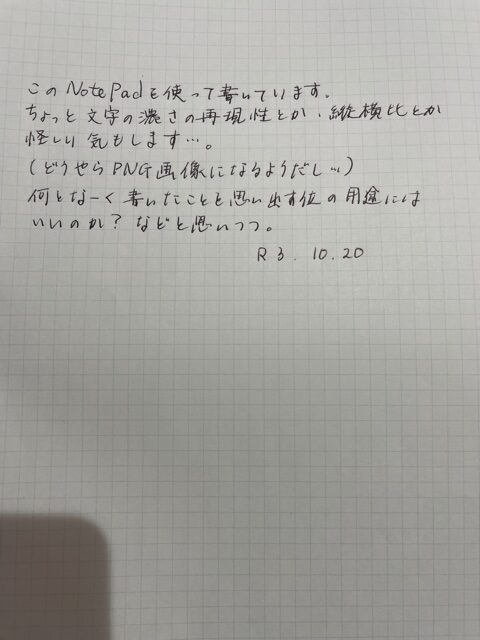 このNotePadを使って書いています.
ちょっと文字の濃さの再現性とか、縦横比とか
怪しい気もします…。
(どうやらPNG画像になるようだし…)
何となーく書いたことを思い出す位の用途には
いいのか？などと思いつつ。
R3. 10. 20